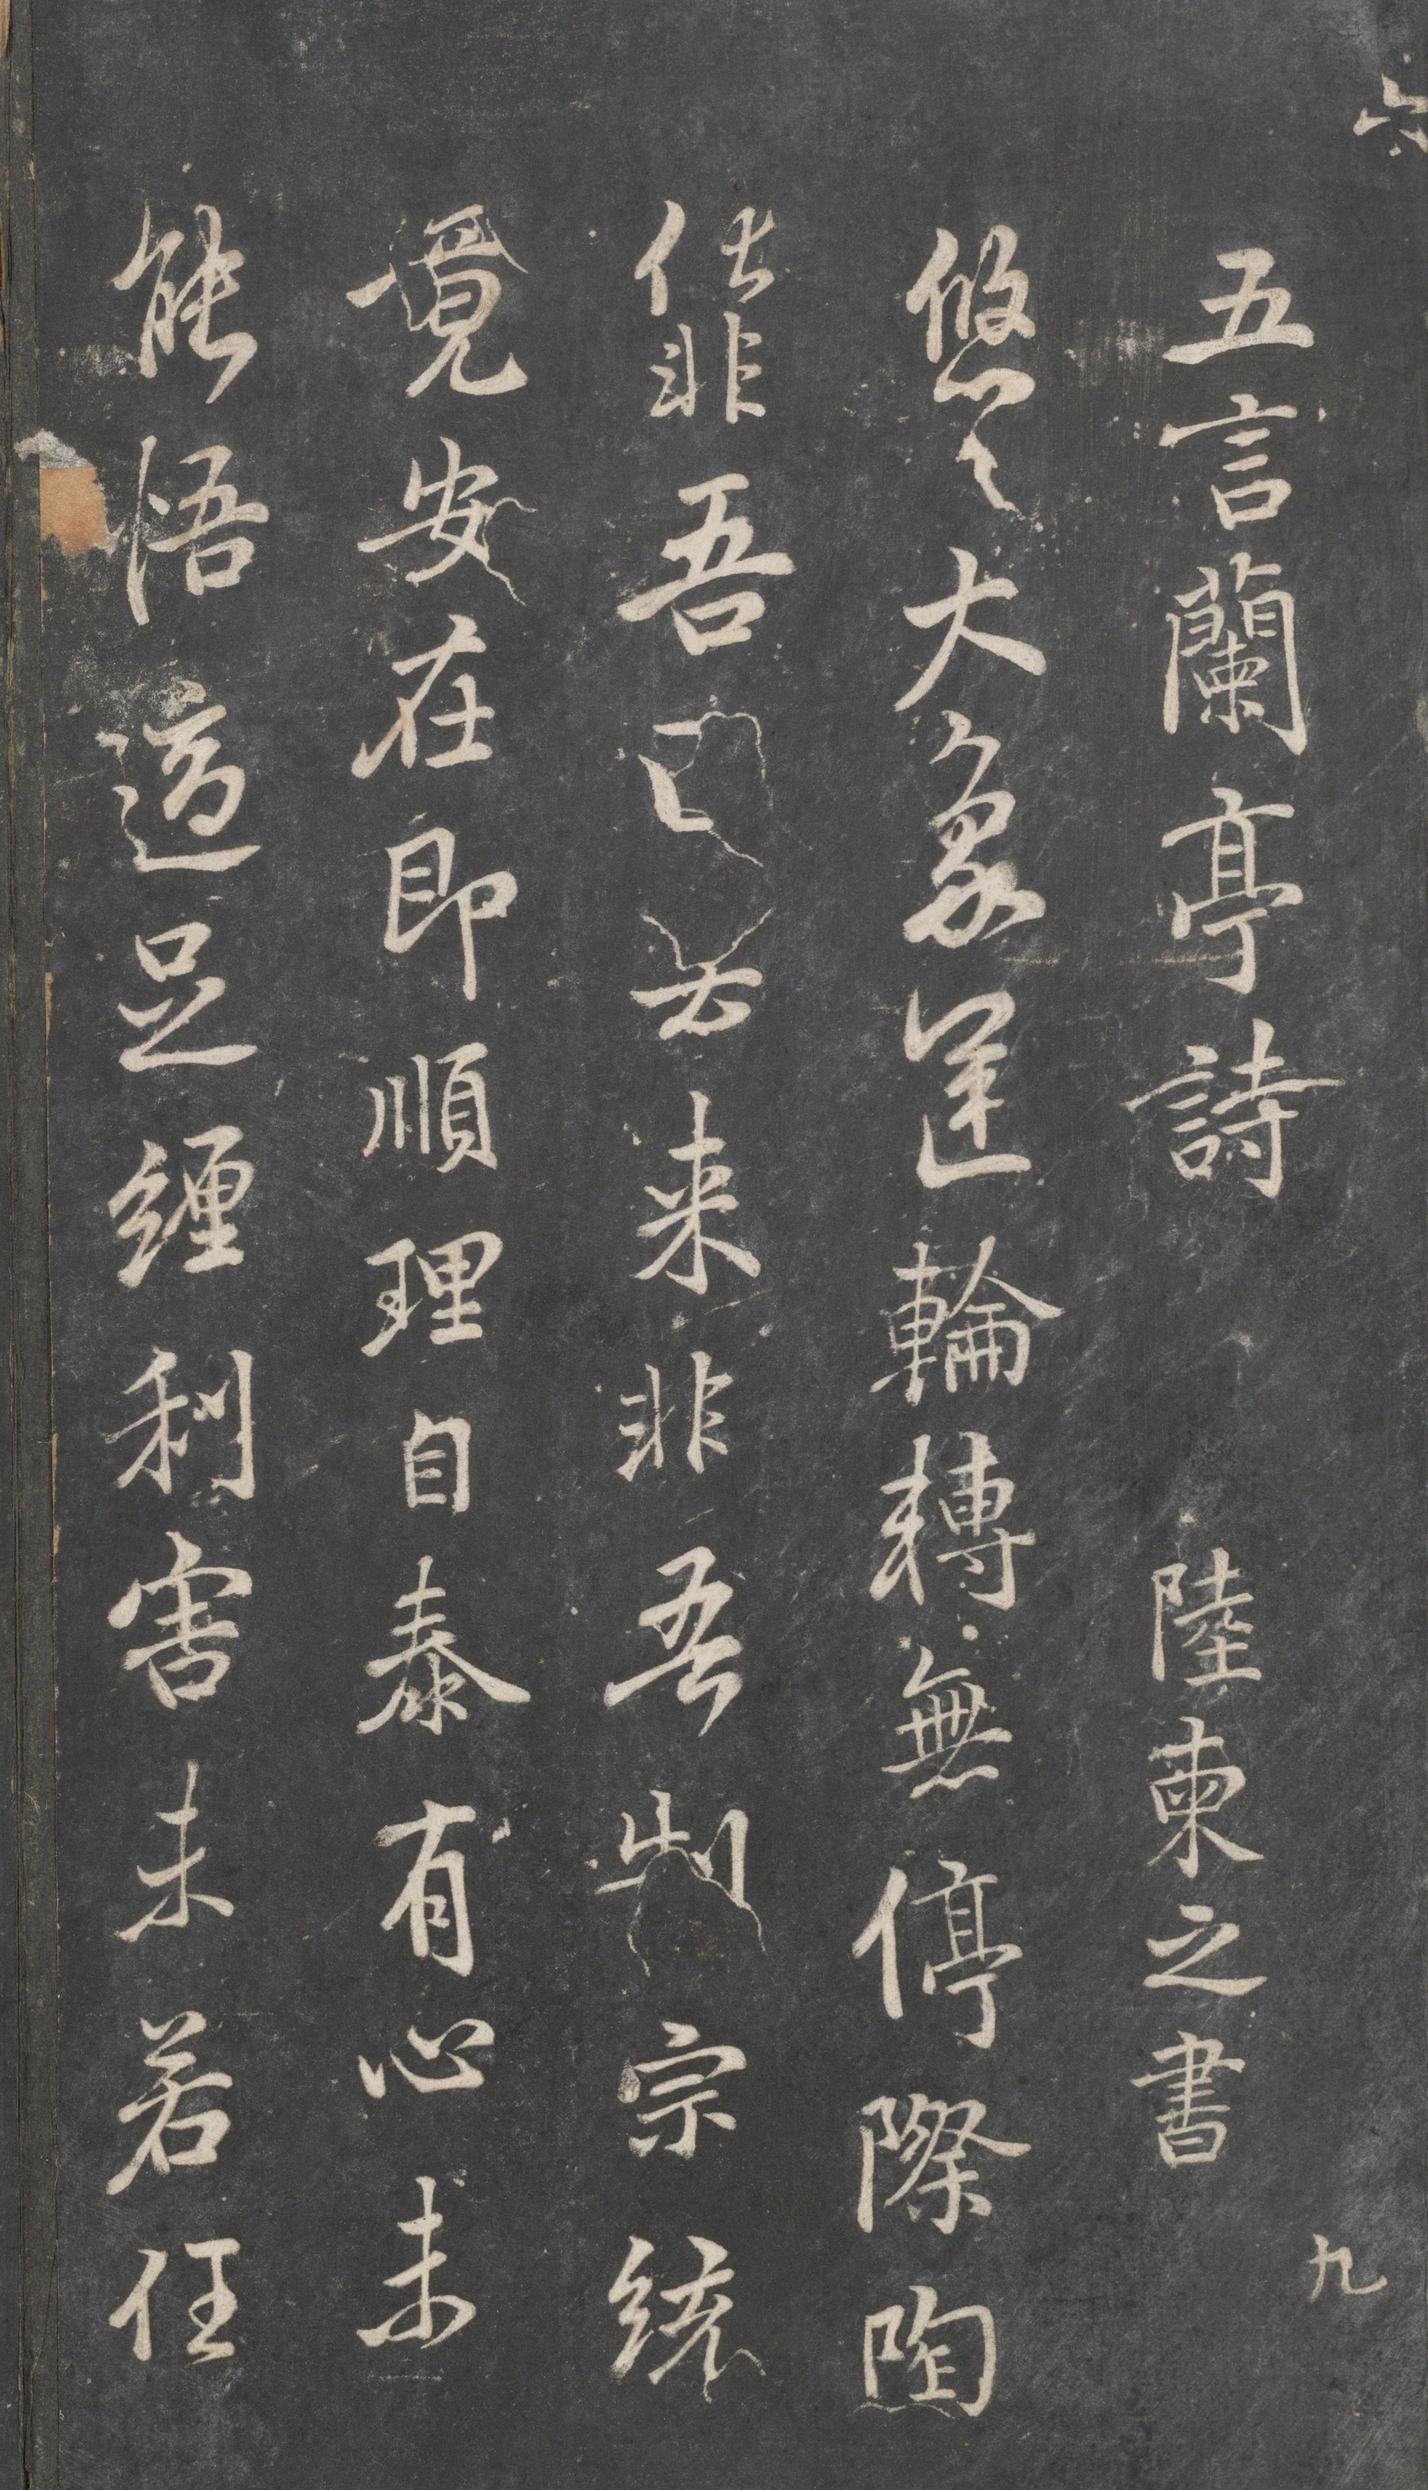 六
五言蘭亭詩 陸柬之書
九
悠〻大象運輪轉無停際陶
化非吾匠去来非吾制宗統
竟安在即順理自泰有心未
能悟適足纏利害未若任